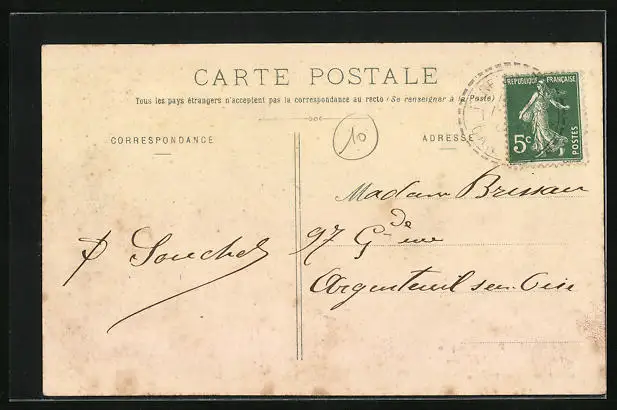 CARTE POSTALE
Tous les pays étrangers n'acceptent pas la correspondance au recto (Se renseigner à la Poste)
RÉPUBLIQUE FRANÇAISE
5c
POSTES
10
CORRESPONDANCE
ADRESSE
Madame Bressau
97 Gde rue
Argenteuil sur Oise
Souchet